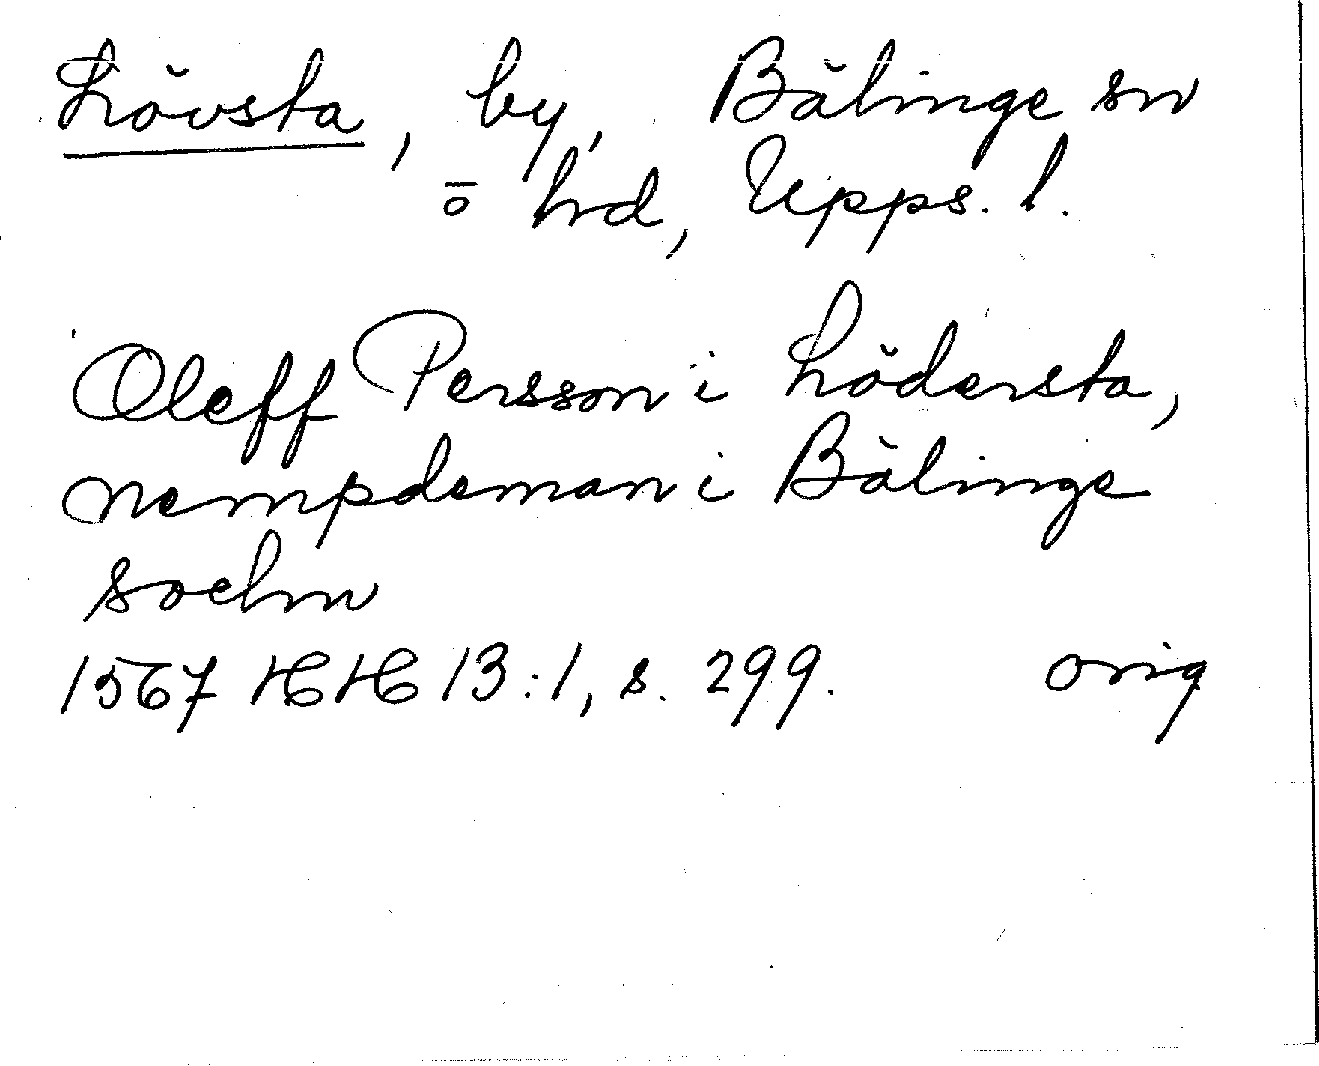 Lövsta, by, Bälinge sn
o hrd, Upps. l.
Oleff Persson i Lödersta,
nempdeman i Bälinge
sochn
1567 HH 13:1, s. 299. orig